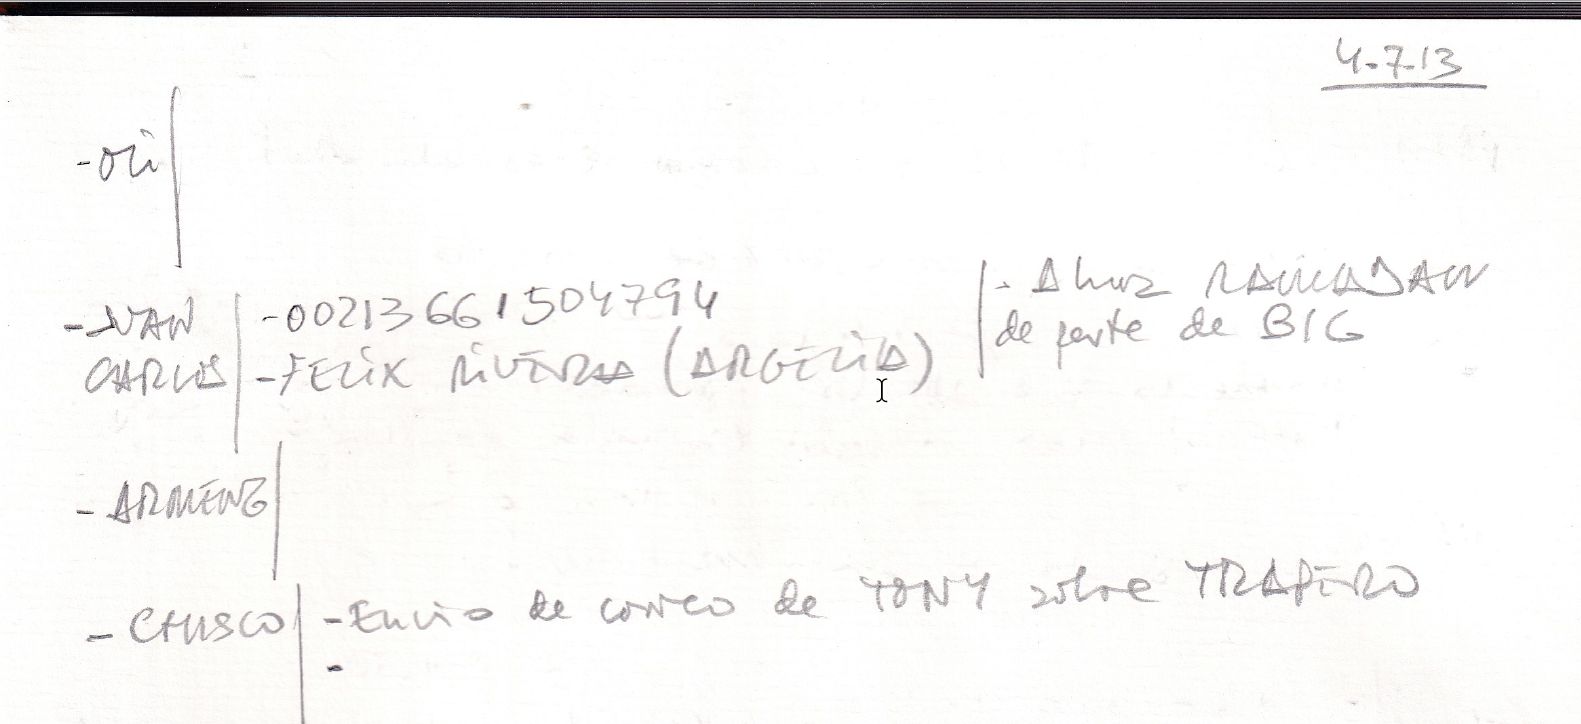 4-7-13
-Oli
-JUAN CARLOS
-00213661504794
-FELIX RIVERA (ARGELIA)
- RAMADAN
de parte de BIG
-ARMENG
-CHUSCO
-Envio de correo de TONY sobre TRAPERO
-